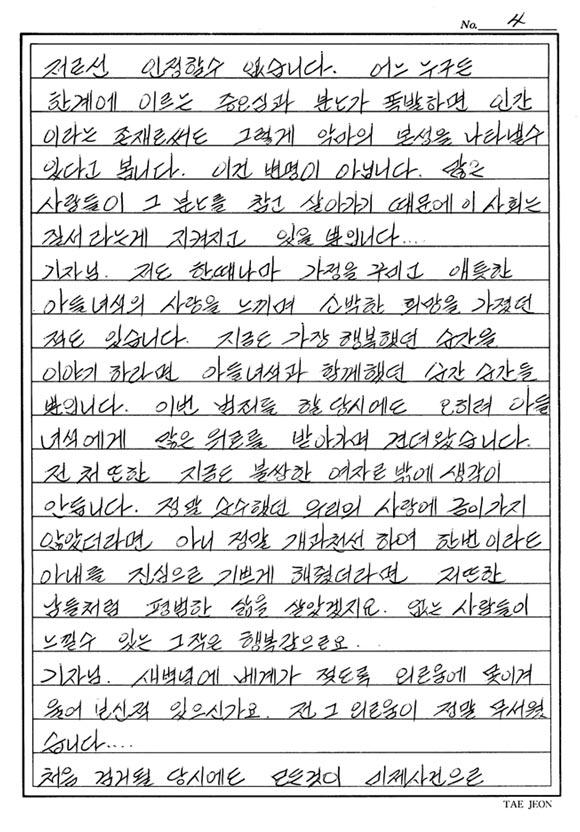 No. 4
저로선 인정할수 없습니다. 어느 누구든
한계에 이르는 증오심과 분노가 폭발하면 인간
이라는 존재로써도 그렇게 악마의 본성을 나타낼수
있다고 봅니다. 이건 변명이 아닙니다. 많은
사람들이 그 분노를 참고 살아가기 때문에 이 사회는
질서라는게 지켜지고 있을 뿐입니다....
기자님. 저도 한때나마 가정을 꾸미고 애틋한
아들녀석의 사랑을 느끼며 소박한 희망을 가졌던
적도 있습니다. 지금도 가장 행복했던 순간을
이야기 하라면 아들녀석과 함께했던 순간 순간들
뿐입니다. 이번 범죄를 할 당시에도 오히려 아들
녀석에게 많은 위로를 받아가며 견뎌왔습니다.
전 처 또한 지금도 불쌍한 여자로 밖에 생각이
안듭니다. 정말 순수했던 우리의 사랑에 금이가지
않았더라면, 아니 정말 개과천선 하여 한번이라도
아내를 진심으로 기쁘게 해줬더라면 저또한
남들처럼 평범한 삶을 살았겠지요. 없는 사람들이
느낄수 있는 그작은 행복감으로요.
기자님. 새벽녘에 베게가 젖도록 외로움에 못이겨
울어 보신적 있으신가요. 전 그 외로움이 정말 무서웠
습니다....
처음 검거될 당시에도 모든것이 미제사건으로
TAE JEON